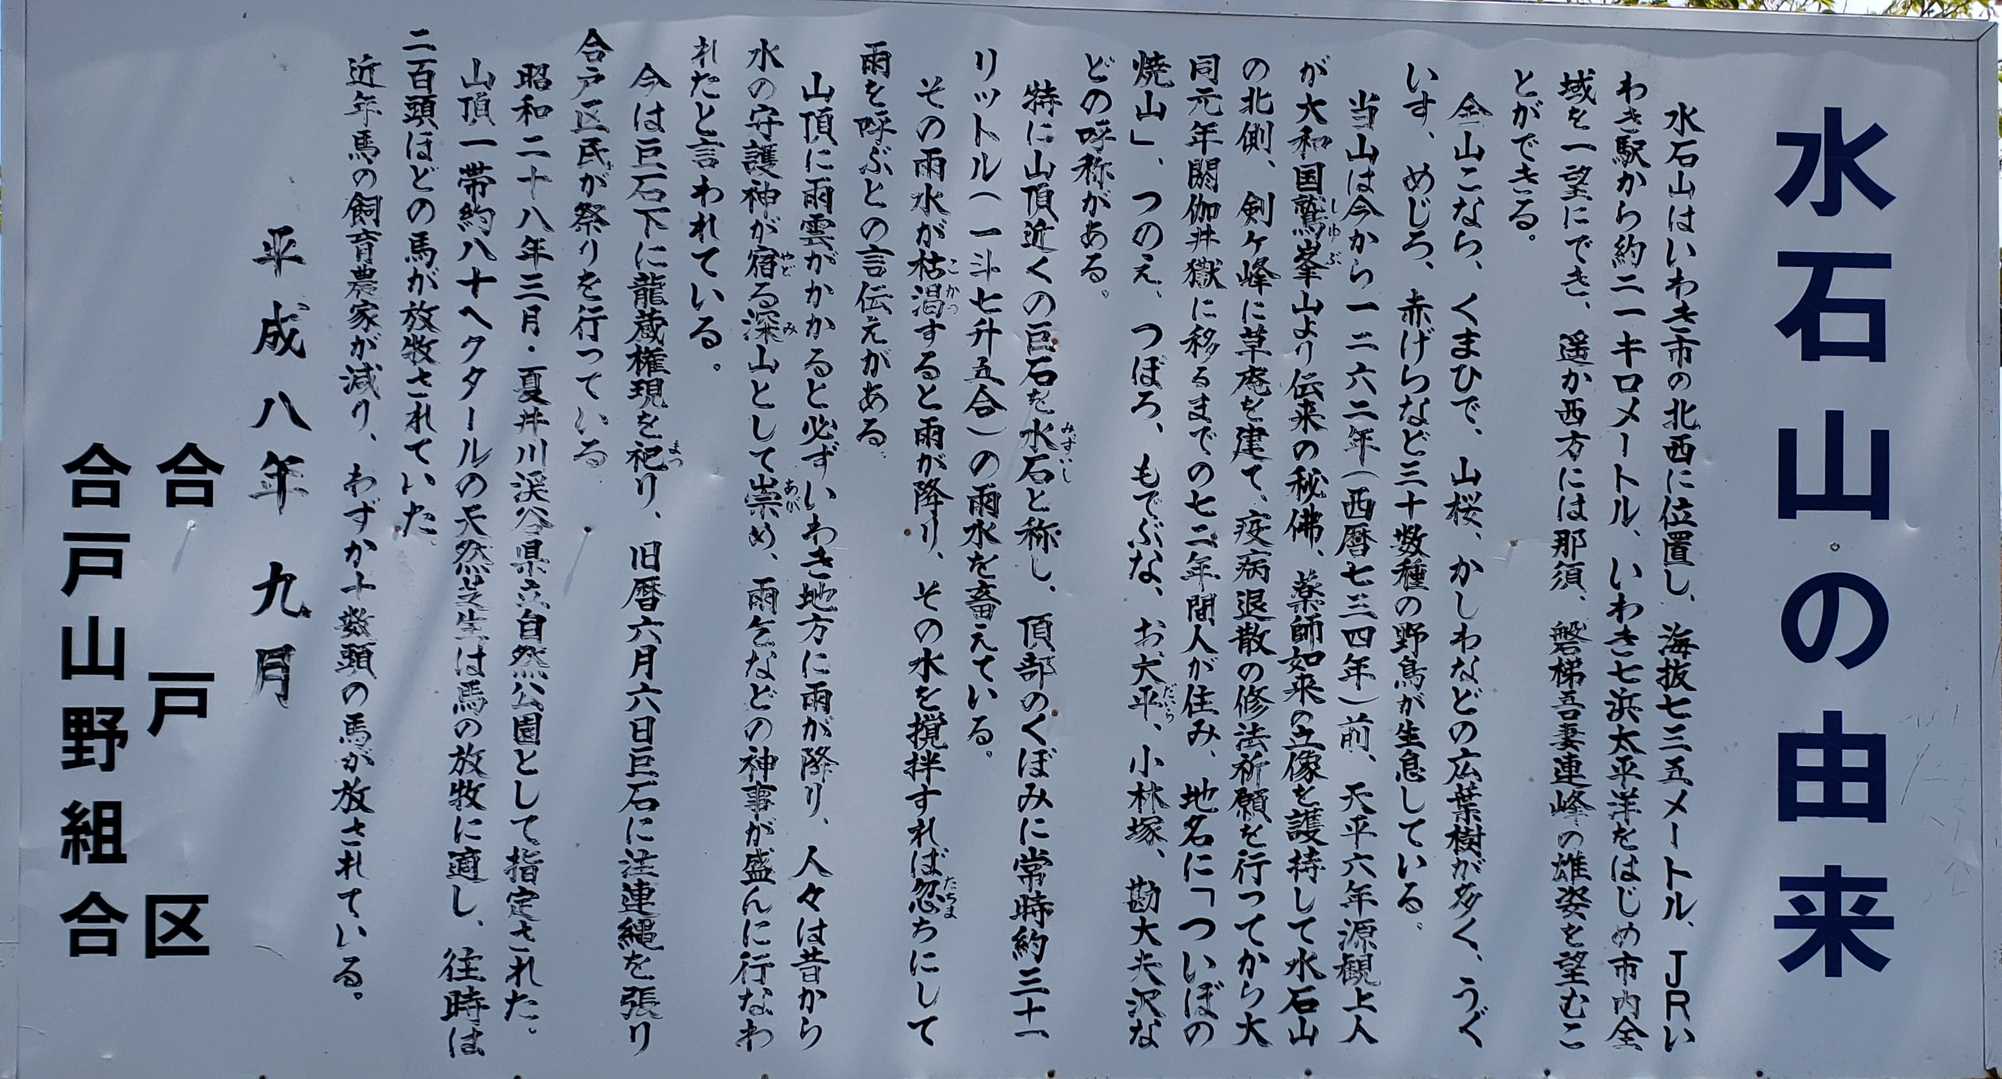 水石山の由来
水石山はいわき市の北西に位置し、海抜七三五メートル、JRい
わき駅から約二一キロメートル、いわき七浜太平洋をはじめ市内全
域を一望にでき、遥か西方には那須、磐梯吾妻連峰の雄姿を望むこ
とができる。
全山こなら、くまひで、山桜、かしわなどの広葉樹が多く、うぐ
いす、めじろ、赤げらなど三十数種の野鳥が生息している。
当山は今から一二六二年(西暦七三四年)前、天平六年源観上人
が大和国鷲峯山より伝来の秘佛、薬師如来の立像を護持して水石山
しゅぶ
の北側、剣ヶ峰に草庵を建て、疫病退散の修法祈願を行ってから大
同元年閼伽井嶽に移るまでの七二年間人が住み、地名に「ついぼの
焼山」、つのえ、つぼろ、もでぶな、お大平、小林塚、勘大夫沢な
だいら
どの呼称がある。
特に山頂近くの巨石を水石と称し、頂部のくぼみに常時約三十一
みずいし
リットル(一斗七升五合)の雨水を畜えている。
その雨水が枯渇すると雨が降り、その水を撹拌すれば忽ちにして
こかつ
たちま
雨を呼ぶとの言伝えがある
山頂に雨雲がかかると必ずいわき地方に雨が降り、人々は昔から
水の守護神が宿る深山として崇め、雨乞などの神事が盛んに行なわ
やど
み
あが
れたと言われている。
今は巨石下に龍蔵権現を祀り、旧暦六月六日巨石に注連縄を張り
まつ
合戸区民が祭りを行っている
昭和二十八年三月・夏井川渓谷県立自然公園として指定された。
山頂一帯約八十ヘクタールの天然芝生は馬の放牧に適し、往時は
二百頭ほどの馬が放牧されていた
近年馬の飼育農家が減り、わずか十数頭の馬が放されている。
平成八年九月
合戸区
合戸山野組合